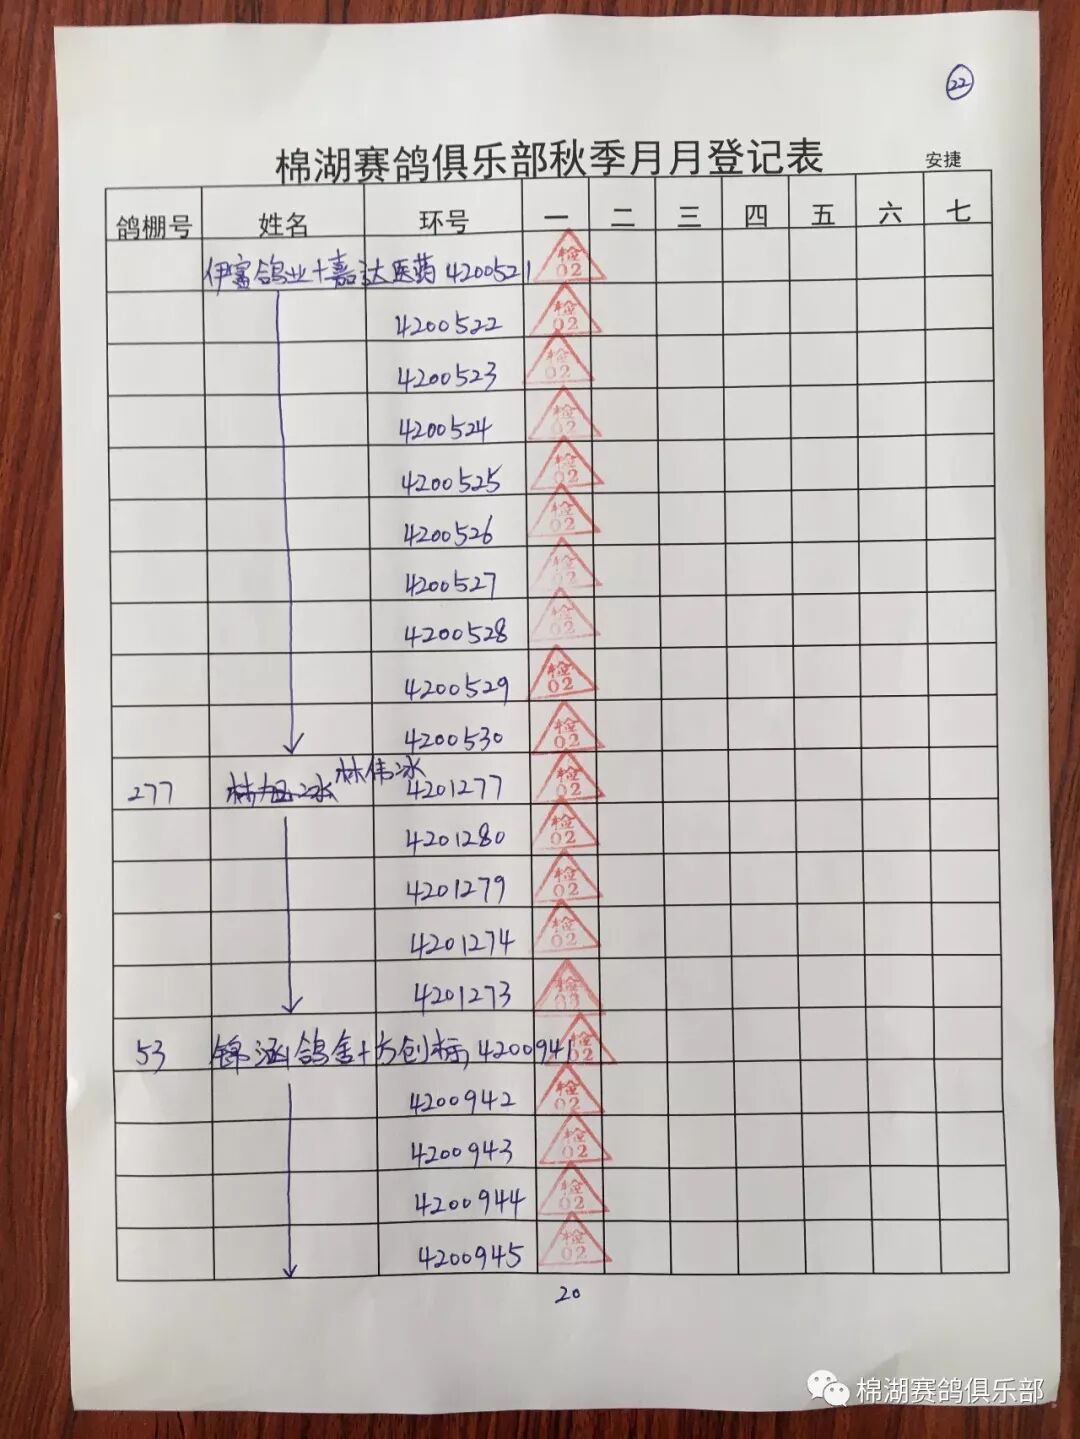 22
棉湖赛鸽俱乐部秋季月月登记表
安捷
鸽棚号 姓名 环号 一 二 三 四 五 六 七
伊富鸽业+嘉达医药 4200521 检02
4200522 检02
4200523 检02
4200524 检02
4200525 检02
4200526 检02
4200527 检02
4200528 检02
4200529 检02
4200530 检02
277 林伟冰 4201277 检02
4201280 检02
4201279 检02
4201274 检02
4201273 检02
53 锦涵鸽舍+方创标 4200941 检02
4200942 检02
4200943 检02
4200944 检02
4200945 检02
20
棉湖赛鸽俱乐部